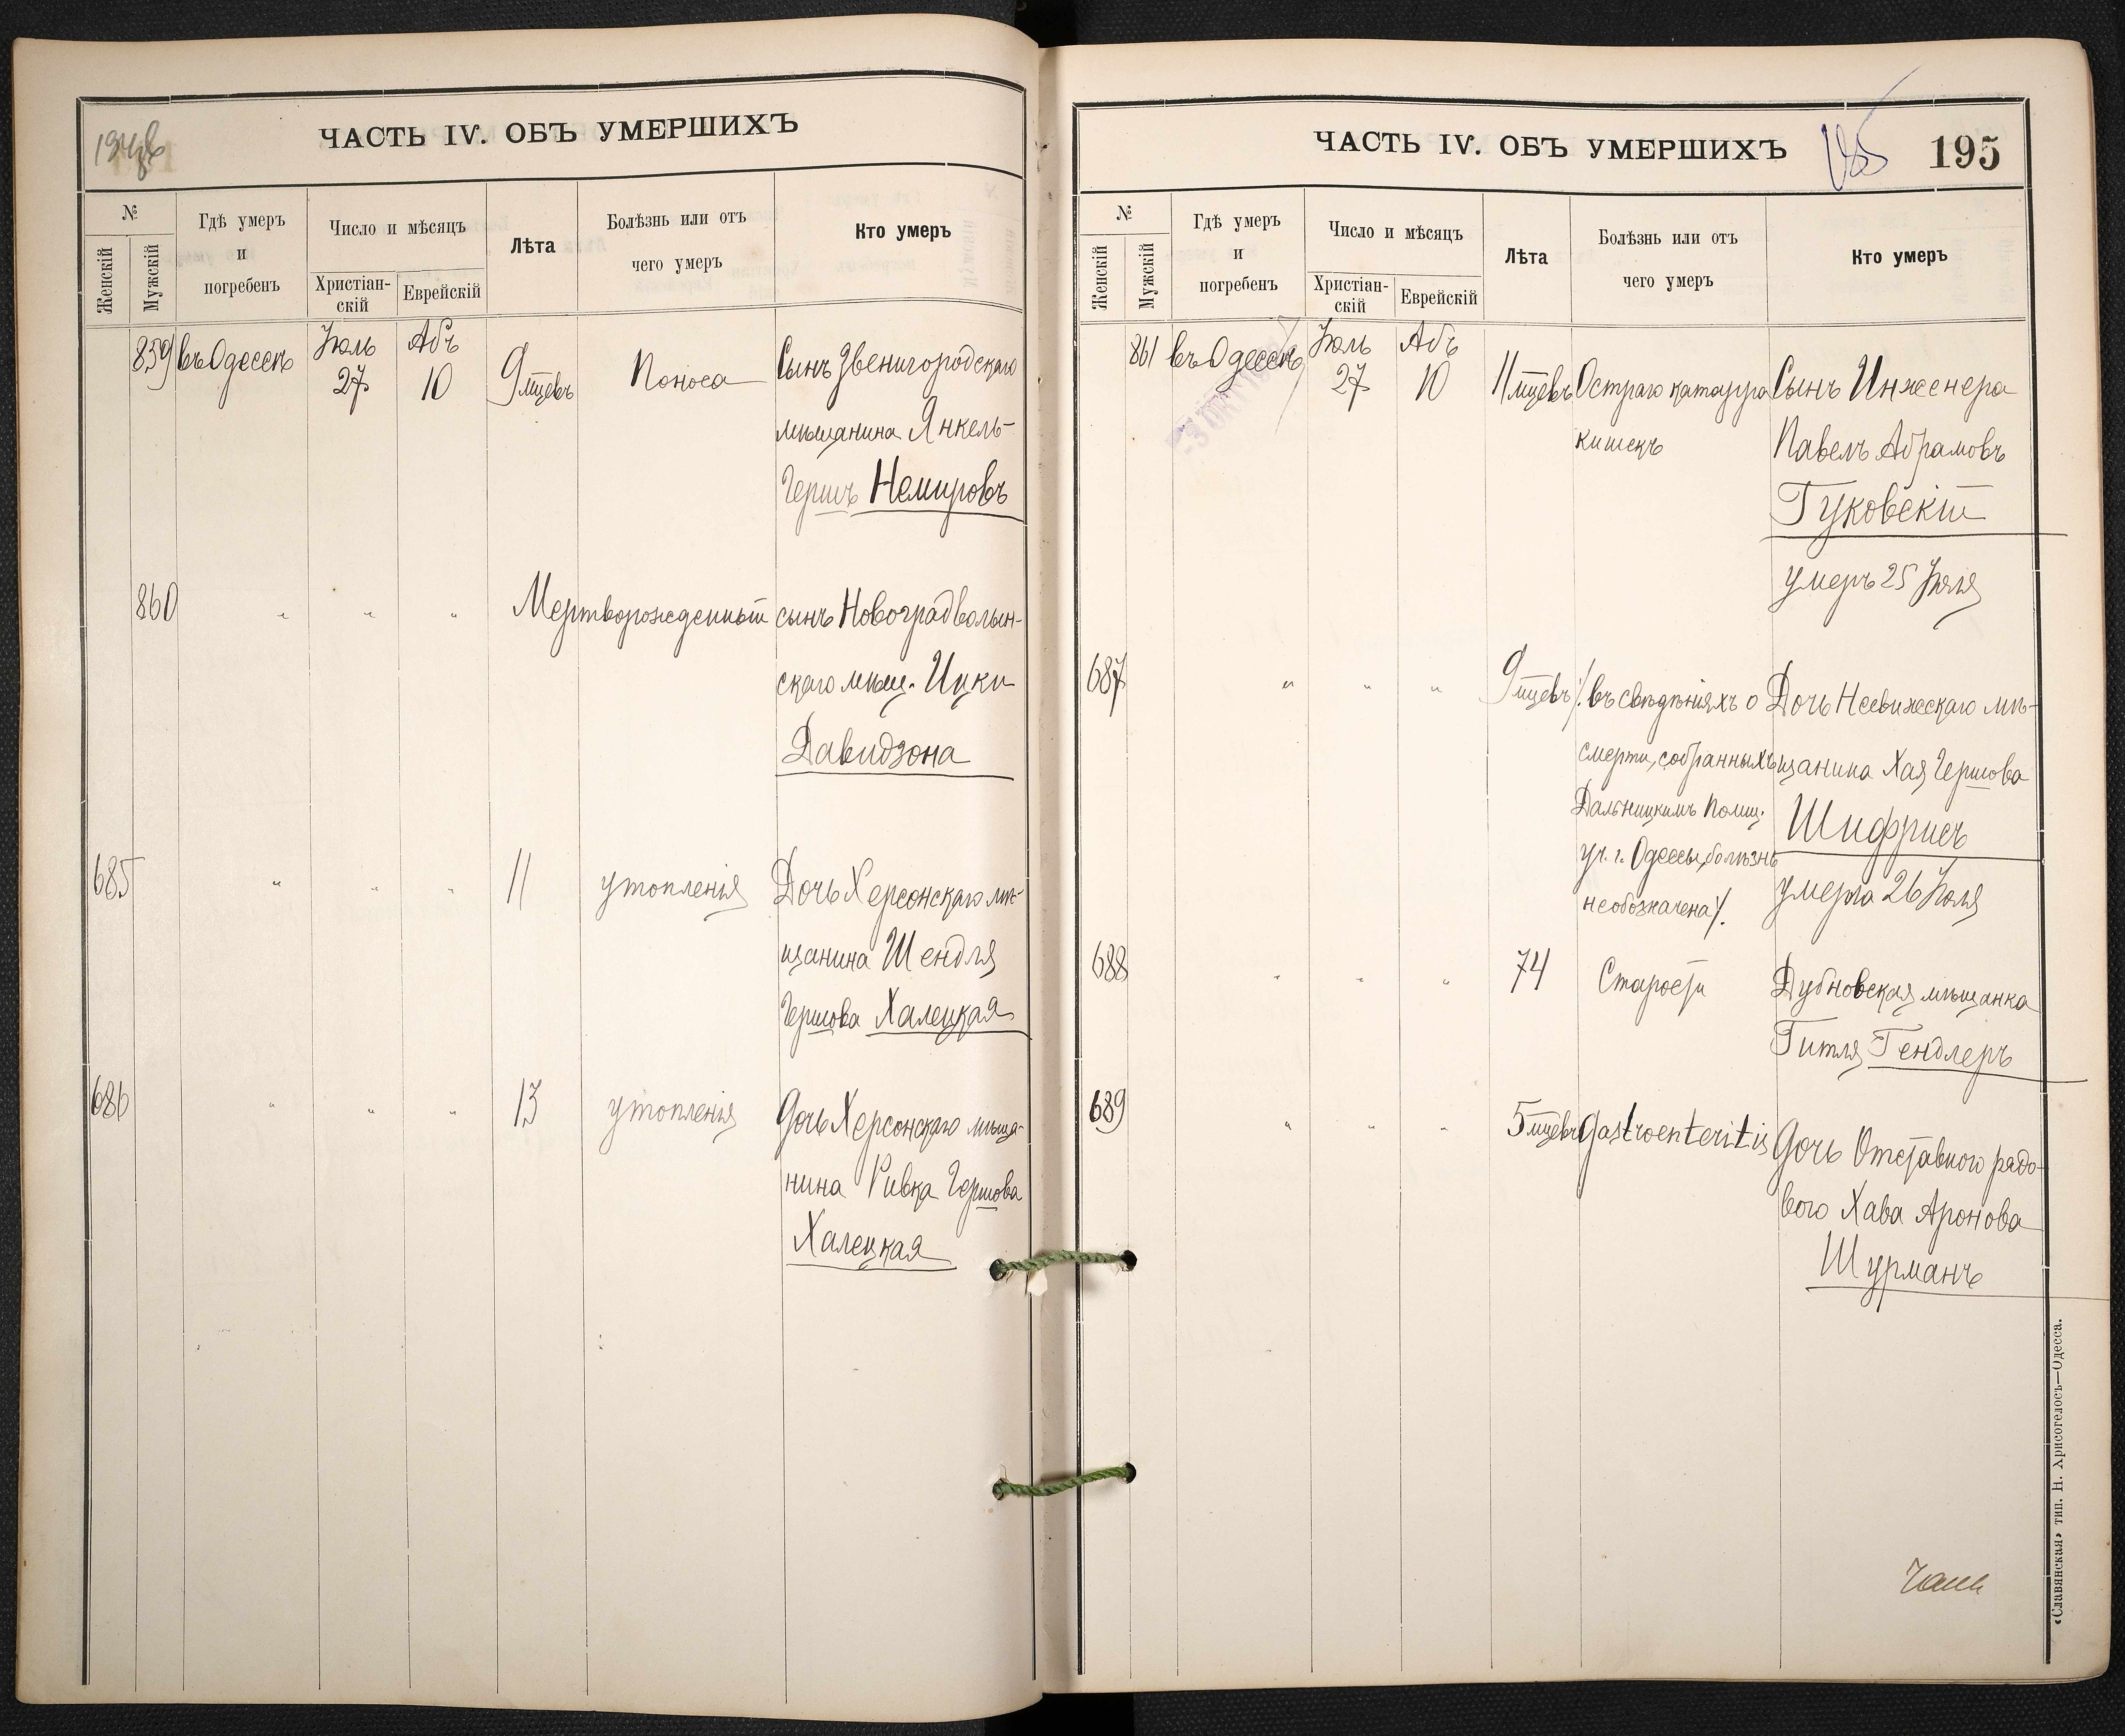 194об
ЧАСТЬ IV. ОБЪ УМЕРШИХЪ
№
Женскій
Мужскій
Гдѣ умеръ
и
погребенъ
Число и мѣсяцъ
Христіан-
скій
Еврейскій
Лѣта
Болѣзнь или отъ
чего умеръ
Кто умеръ
859 въ Одессѣ Іюль 27 Абъ 10 9 мцевъ Поноса Сынъ Звенигородскаго
мѣщанина Янкель-
Гершъ Немировъ
860 " " " Мертворожденный сынъ Новоградволын-
скаго мѣщ. Ицки
Давидзона
685 " " " 11 утопленія Дочь Херсонскаго мѣ-
щанина Шендля
Гершова Халецкая
686 " " " 13 утопленія Дочь Херсонскаго мѣща-
нина Ривка Гершова
Халецкая
ЧАСТЬ IV. ОБЪ УМЕРШИХЪ
195
№
Женскій
Мужскій
Гдѣ умеръ
и
погребенъ
Число и мѣсяцъ
Христіан-
скій
Еврейскій
Лѣта
Болѣзнь или отъ
чего умеръ
Кто умеръ
861 въ Одессѣ Іюль 27 Абъ 10 11 мцевъ Остраго катарра Сынъ Инженера
кишекъ Павелъ Абрамовъ
Гуковскій
умеръ 25 Іюля
687 " " " 9 мцевъ /. въ свѣдѣніяхъ о Дочь Несвижскаго мѣ-
смерти, собранныхъ щанина Хая Гершова
Дальницкимъ полиц. Шифрисъ
уч. г. Одессы, болѣзнь умерла 26 Іюля
не обозначена /.
688 " " " 74 Старости Дубновская мѣщанка
Гитля Гендлеръ
689 " " " 5 мцевъ Gastroenteritis Дочь Отставного рядо-
вого Хава Аронова
Шурманъ
«Славянская» тип. Н. Хрисогелосъ—Одесса.